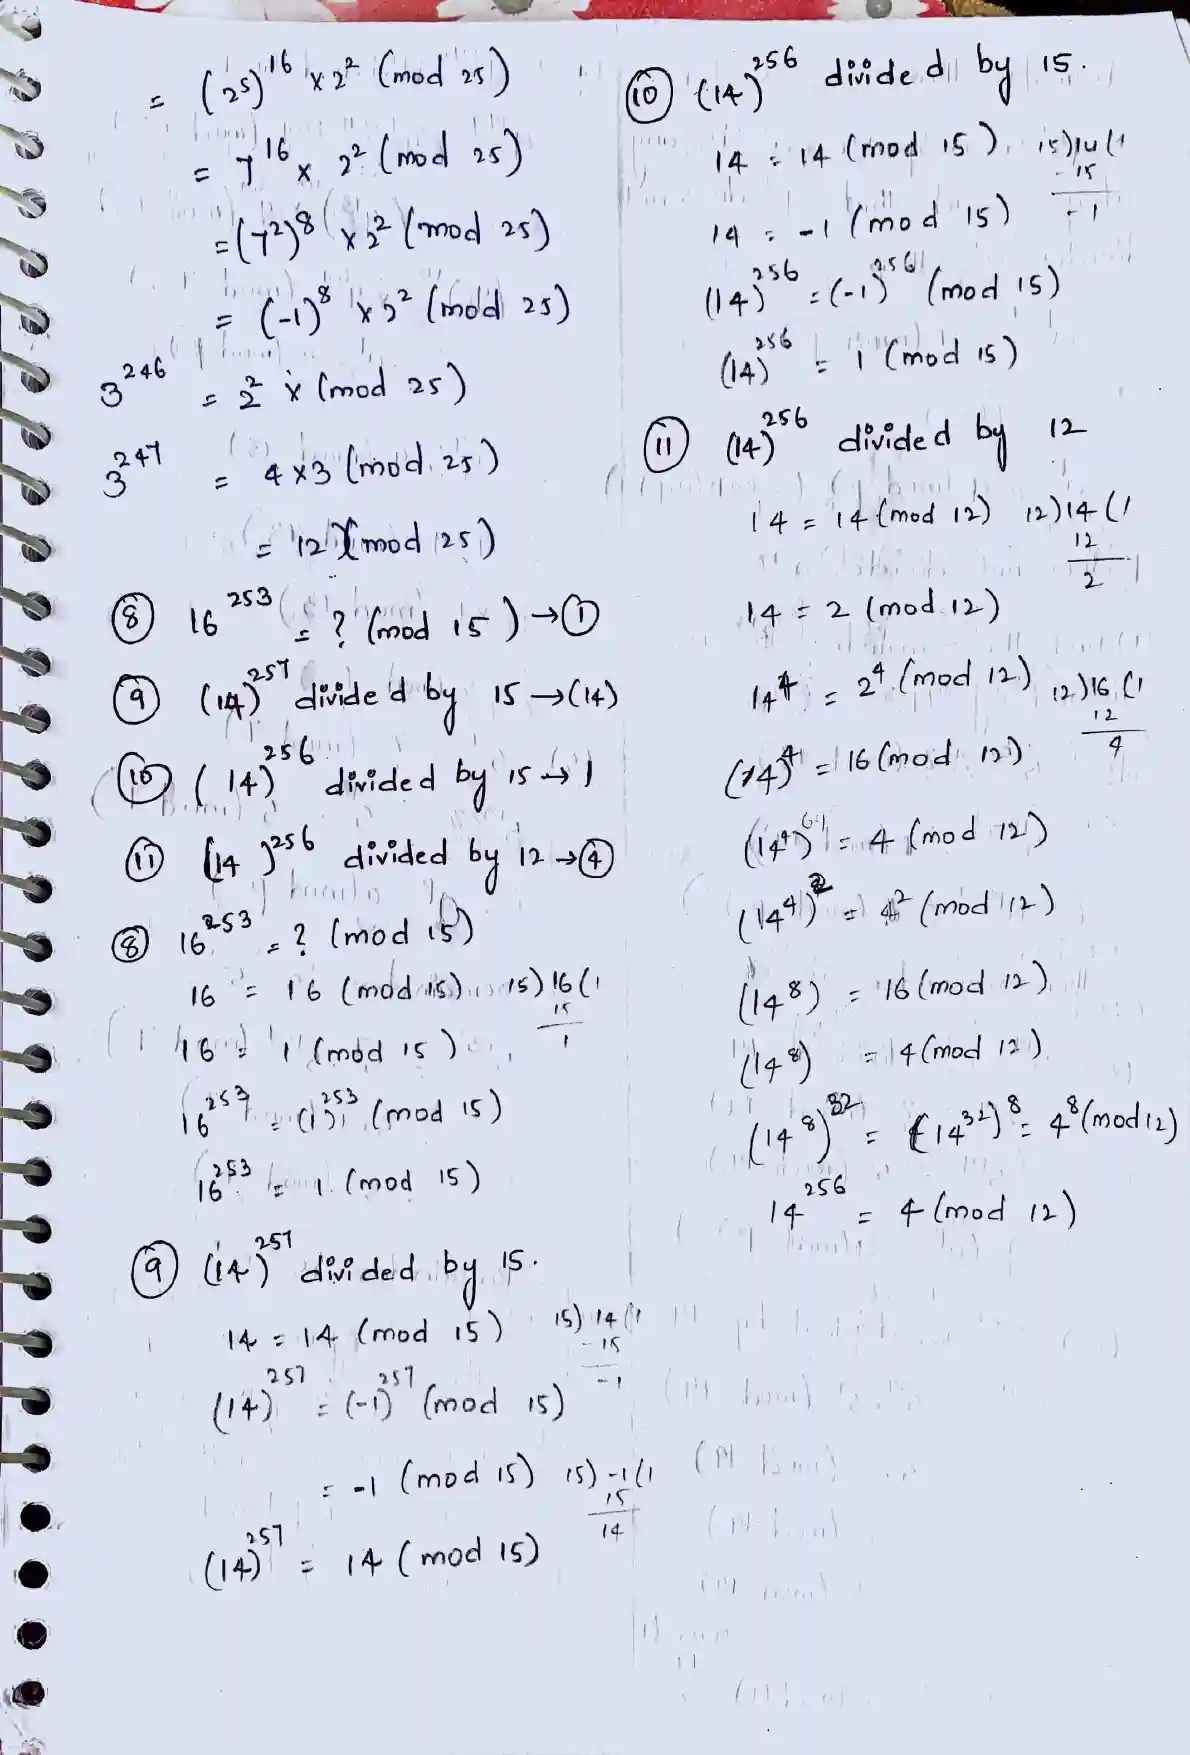 = (25)^16 × 2^2 (mod 25)
= 7^16 × 2^2 (mod 25)
= (7^2)^8 × 2^2 (mod 25)
= (-1)^8 × 2^2 (mod 25)
3^246 = 2^2 × (mod 25)
3^247 = 4 × 3 (mod 25)
= 12 (mod 25)
⑧ 16^253 = ? (mod 15) → ①
⑨ (14)^257 divided by 15 → (14)
⑩ (14)^256 divided by 15 → 1
⑪ (14)^256 divided by 12 → ④
⑧ 16^253 = ? (mod 15)
16 = 16 (mod 15) 15) 16 (1
15
1
16 = 1 (mod 15)
16^253 = (1)^253 (mod 15)
16^253 = 1 (mod 15)
⑨ (14)^257 divided by 15.
14 = 14 (mod 15) 15) 14 (1
- 15
-1
(14)^257 = (-1)^257 (mod 15)
= -1 (mod 15) 15) -1 (1
15
14
(14)^257 = 14 (mod 15)
⑩ (14)^256 divided by 15.
14 = 14 (mod 15) 15) 14 (1
- 15
-1
14 = -1 (mod 15)
(14)^256 = (-1)^256 (mod 15)
(14)^256 = 1 (mod 15)
⑪ (14)^256 divided by 12
14 = 14 (mod 12) 12) 14 (1
12
2
14 = 2 (mod 12)
14^4 = 2^4 (mod 12) 12) 16 (1
12
4
(14)^4 = 16 (mod 12)
(14^4)^64 = 4 (mod 12)
(14^4)^2 = 4^2 (mod 12)
(14^8) = 16 (mod 12)
(14^8) = 4 (mod 12)
(14^8)^32 = (14^32)^8 = 4^8 (mod 12)
14^256 = 4 (mod 12)